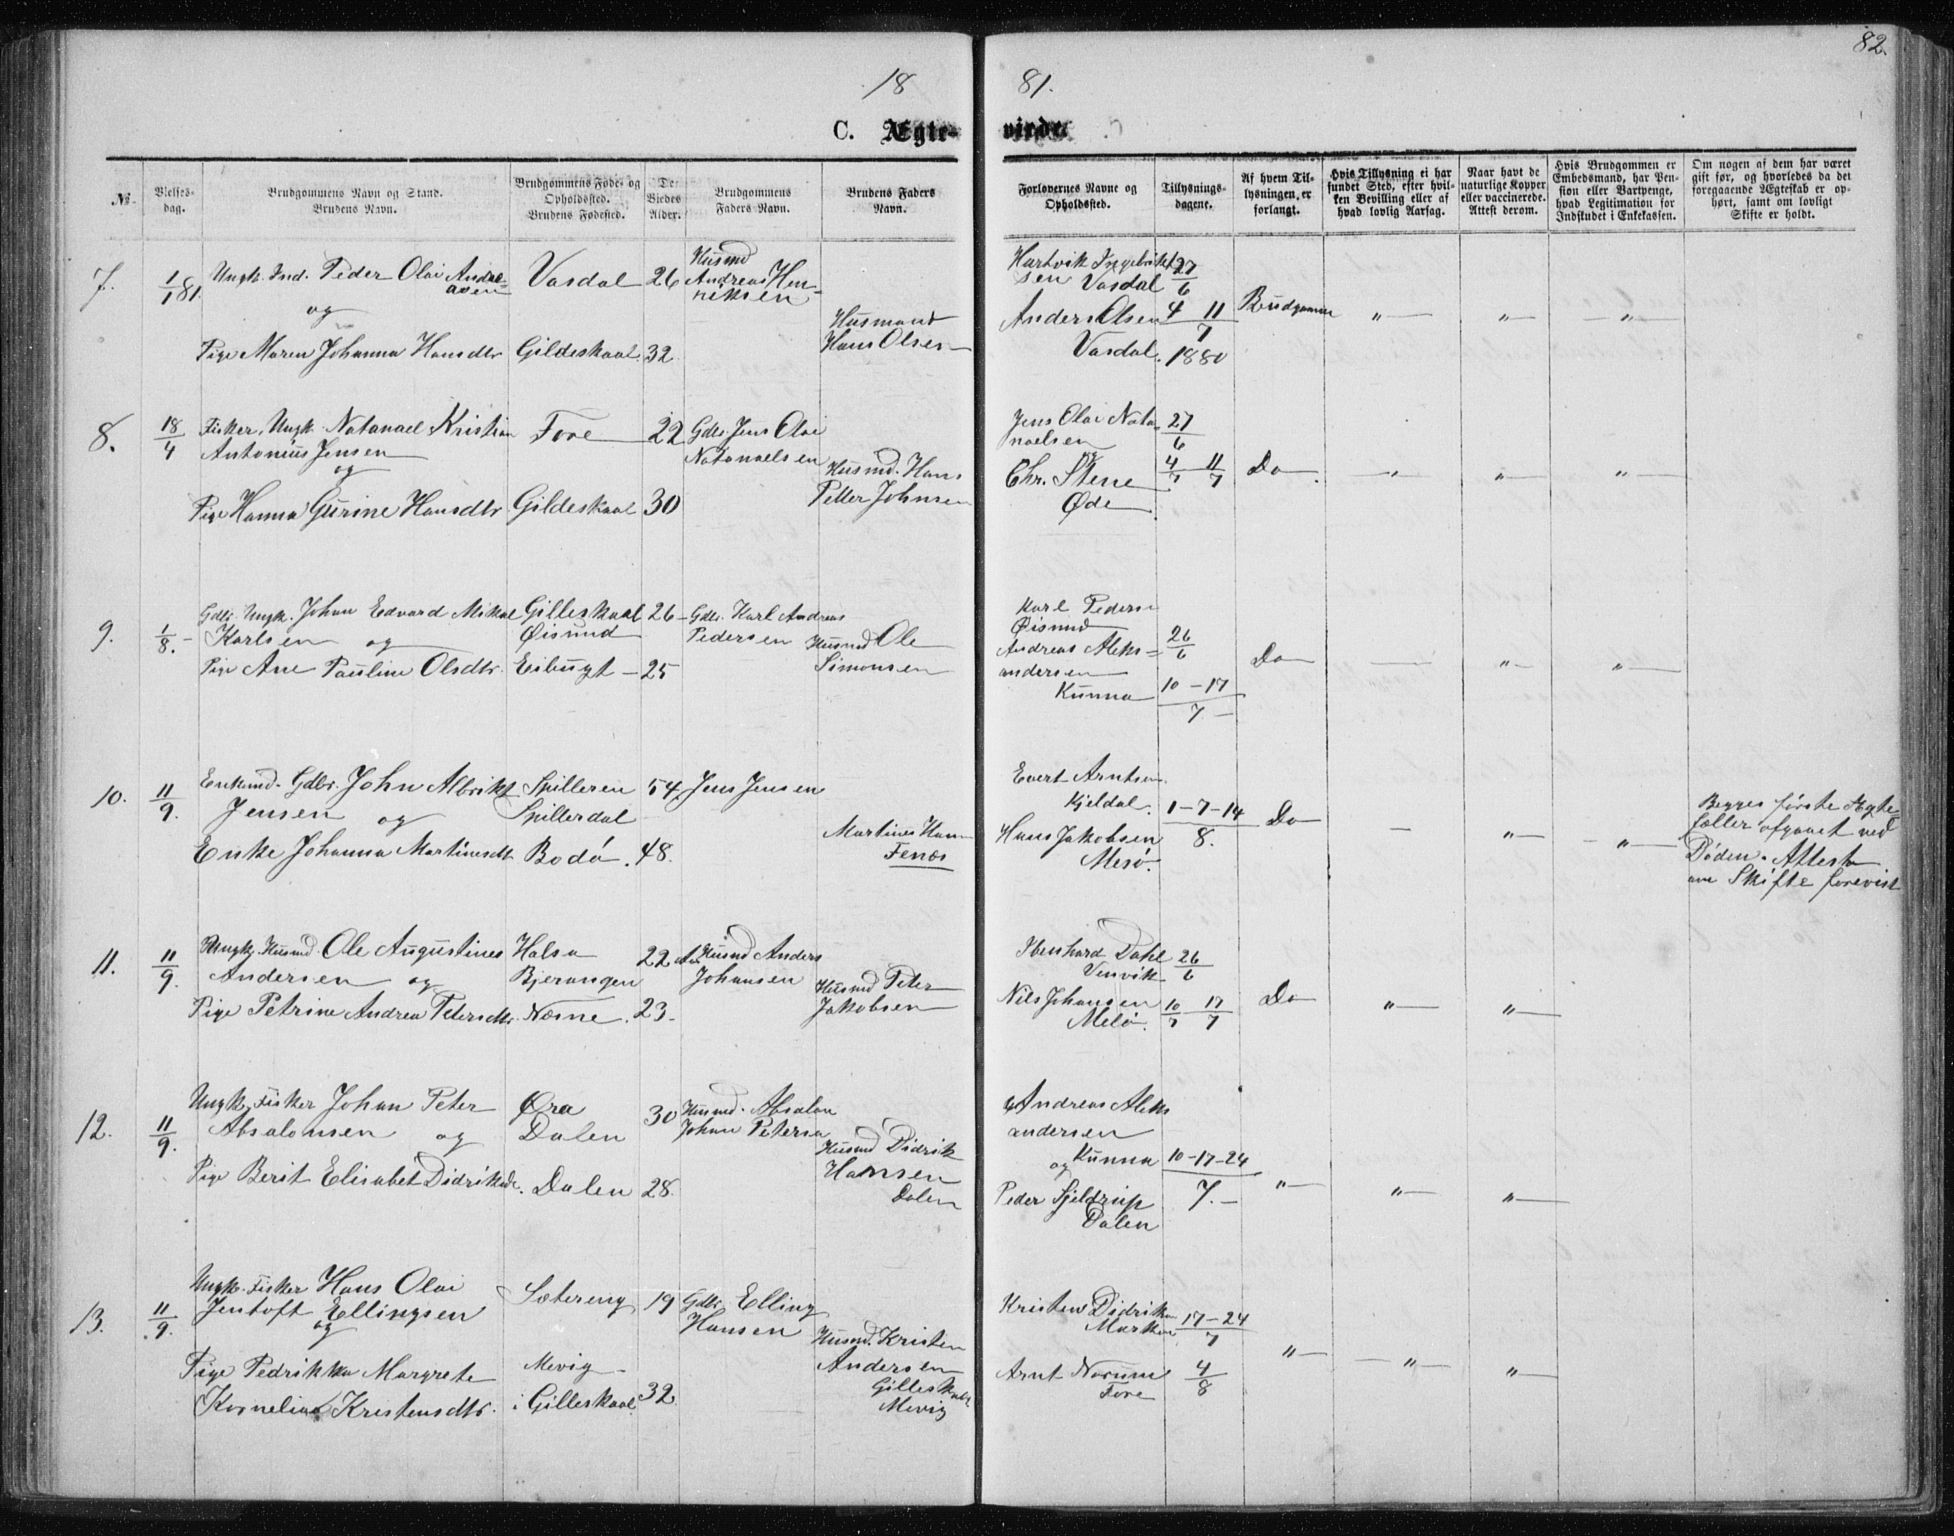 82.
18 81.
C. Ægte- virde.
№.
Vielses-
dag.
Brudgommens Navn og Stand.
Brudens Navn.
Brudgommens Føde- og
Opholdssted.
Brudens Fødested.
De
Viedes
Alder.
Brudgommens
Faders Navn.
Brudens Faders
Navn.
Forlovernes Navne og
Opholdssted.
Tillysnings-
dagene.
Af hvem Til-
lysningen er
forlangt.
Hvis Tillysning ei har
fundet Sted, efter hvil-
ken Bevilling eller af
hvad lovlig Aarsag.
Naar havt de
naturlige Kopper
eller vaccinerede.
Attest derom.
Hvis Brudgommen er
Embedsmand, har Pen-
sion eller Vartpenge,
hvad Legitimation for
Indskudet i Enkekassen.
Om nogen af dem har været
gift før, og hvorledes da det
foregaaende Ægteskab er op-
hørt, samt om lovligt
Skifte er holdt.
7. 1/1 81. Ungk. Ind. Peder Olai Andre-
asen
og
Pige Maren Johanna Hansdtr
Vasdal 26
Gildeskaal 32
Husmd
Andreas Hen-
riksen
Husmand
Hans Olsen
Hartvik Ingebrikt
sen Vasdal
Anders Olsen
Vasdal
27/6
4 11
7
1880
Brudgommen " " "
8. 18/4 Fisker, Ungk. Natanael Kristian
Antonius Jensen
og
Pige Hanna Gurine Hansdtr
Fore 22
Gildeskaal 30
Gdbr. Jens Olai
Natanaelsen
Husmd. Hans
Petter Johnsen
Jens Olai Nata-
naelsen
og
Chr. Stene
Øde
27/6
4/7 11/7
Do " " "
9. 1/8. Gdbr. Ungk. Johan Edvard Mikal
Karlsen og
Pige Ane Pauline Olsdtr.
Gilleskaal 26
Øisund
Eibugt 25
Gdbr. Karl Andreas
Pedersen
Husmd Ole
Simonsen
Karl Peders
Øisund
Andreas Aleks-
andersen
Kunna
26/6
10 - 17
7
Do " "
10. 11/9. Enkemd. Gdbr. John Albrikt
Jensen og
Enke Johanna Martinusdt
Spilleren 54
Spillerdal
Bodø. 48.
Jens Jensen
Martines Han
Fenæs
Evert Arntsen
Kjeldal.
Hans Jakobsen
Mesø.
1-7-14
8.
Do " "
Begges første Ægte
fæller afgaaet ved
Døden. Attest
om Skifte forevist
11. 11/9. Ungk. Husmd. Ole Augustines
Andersen og
Pige Petrine Andrea Petersdtr
Halsa 22
Bjerangen
Næsne. 23
Husmd Anders
Johansen
Husmd Peter
Jakobsen
Ibenhard Dahl
Venvik
Nils Johansen
Melø.
26/6
10/7 17/7
Do " "
12. 11/9. Ungk. Fisker Johan Peter
Absalonsen og
Pige Berit Elisabet Didriksd.
Øra 30
Dalen
Dalen 28.
Husmd. Absalon
Johan Peters
Husmd Didrik
Hansen
Dalen
Andreas Aleks
andersen
og Kunna
Peder Sjeldrup
Dalen
10-17-24
7.
" " "
13. 11/9. Ungk. Fisker Hans Olai
Jentoft Ellingsen
og
Pige Pedrikka Margrete
Kornelia Kristensdtr.
Sætereng 19
Mevig
i Gilleskaal 32
Gdbr. Elling
Hansen
Husmd. Kristen
Andersen
Gilleskaal
Mevig
Kristen Didrik
Marken
Arnt Norum
Fore
17-24
7
4/8
" " "